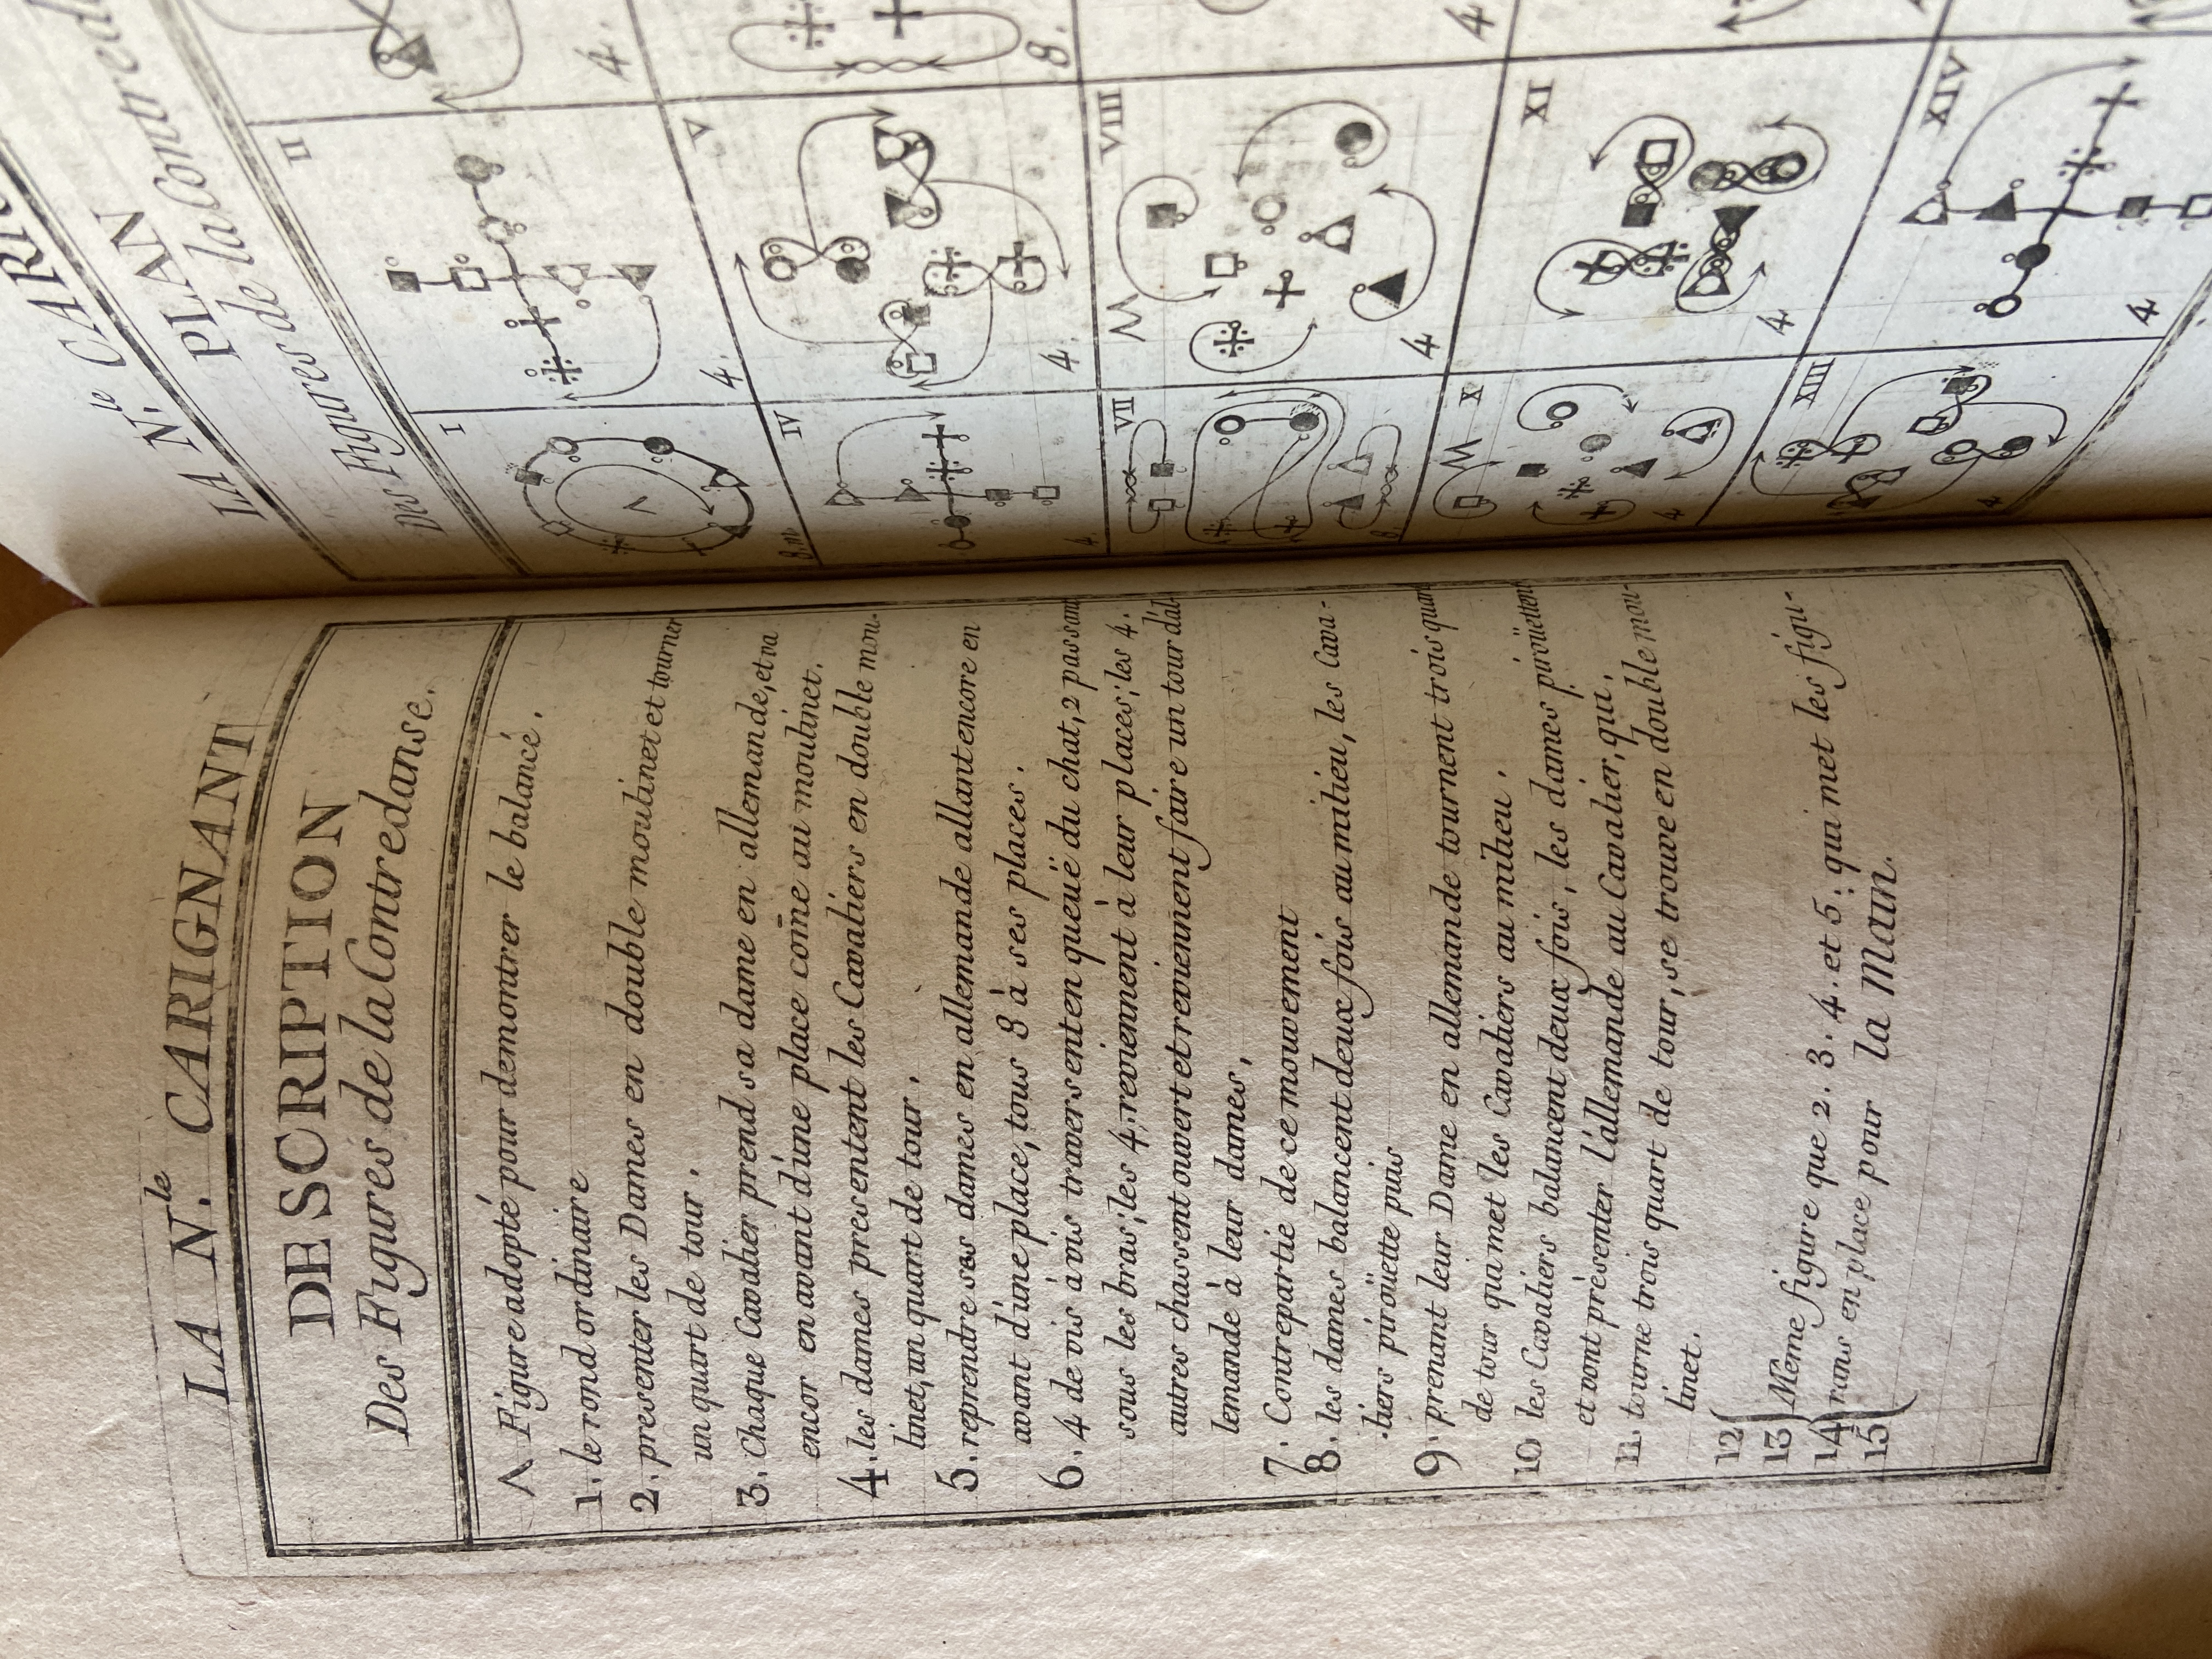 LA N.le CARIGNANT
DESCRIPTION
Des Figures de la Contredanse.
Λ Figure adopté pour demontrer le balancé.
1. le rond ordinaire
2. presenter les Dames en double moulinet et tourner
un quart de tour.
3. Chaque Cavalier prend sa dame en allemande, et va
encor en avant d'une place com̄e au moulinet.
4. les dames presentent les Cavaliers en double mou-
linet, un quart de tour.
5. reprendre ses dames en allemande allant encore en
avant d'une place, tous 8 à ses places.
6. 4 de vis à vis traversent en queuë du chat, 2 passant
sous les bras; les 4 reviennent à leur places; les 4.
autres chassent ouvert et reviennent faire un tour d'al-
lemande à leur dames,
7. Contrepartie de ce mouvement
8. les dames balancent deux fois au milieu, les Cava-
-liers piroüette puis
9. prenant leur Dame en allemande tournent trois quart
de tour qui met les Cavaliers au milieu.
10 les Cavaliers balancent deux fois, les dames piroüettent
et vont présenter l'allemande au Cavalier, qui,
11. tourne trois quart de tour, se trouve en double mou-
linet.
12
13 Même figure que 2. 3. 4. et 5. qui met les figu-
14 rans en place pour la Main.
15
LA N.le CARI
PLAN
Des Figures de la Contreda
I
8.m
II
4.
4.
IV
4.
V
4.
8.
VII
8.
VIII
W
4
4
X
W
4
XI
4
XIII
4
XIV
4